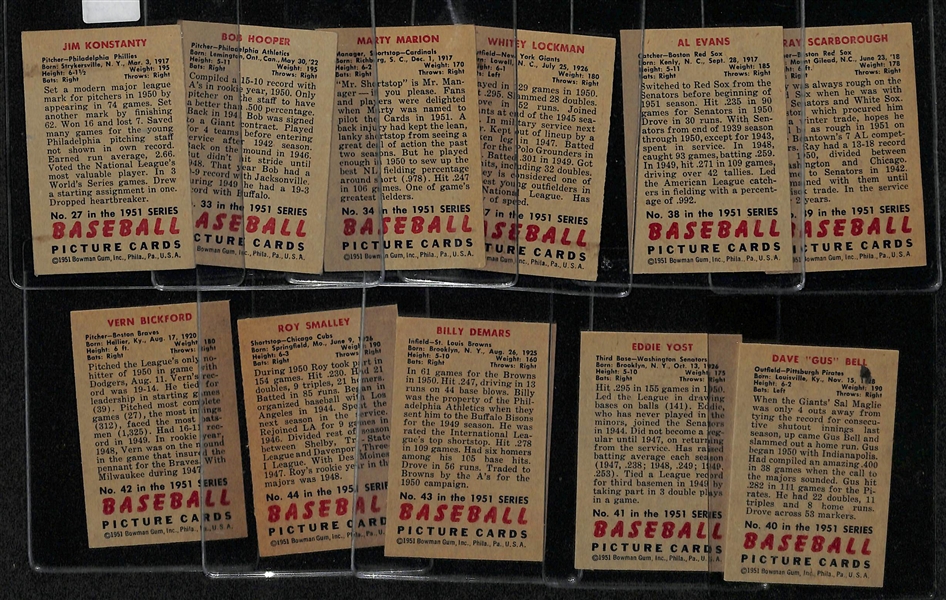 JIM KONSTANTY
Pitcher—Philadelphia Phillies
Born: Strykersville, N. Y., Mar. 3, 1917
Height: 6-1½ Weight: 195
Bats: Right Throws: Right
Set a modern major league
mark for pitchers in 1950 by
appearing in 74 games. Set
another mark by finishing
62. Won 16 and lost 7. Saved
many games for the young
Philadelphia pitching staff
not shown in own record.
Earned run average, 2.66.
Voted the National League's
most valuable player. In 3
World Series games. Drew
a starting assignment in one.
Dropped heartbreaker.
No. 27 in the 1951 SERIES
BASEBALL
PICTURE CARDS
©1951 Bowman Gum, Inc., Phila., Pa., U. S. A.
BOB HOOPER
Pitcher—Philadelphia Athletics
Born: Leamington, Ont., Can., May 30, '22
Height: 5-11 Weight: 195
Bats: Right Throws: Right
Compiled a 15-10 record with
A's in rookie year, 1950. Only
pitcher on the staff to have
a better than .500 percentage.
Back in 1941 Bob was signed
to a Giant contract. Played
for 4 teams before entering
service after 1942 season.
Back on mound in 1946.
but didn't hit stride until
1948. That year Bob had
with Jacksonville.
During 1949 he had a 19-3
with Buffalo.
No. 33 in the 1951 SERIES
BASEBALL
PICTURE CARDS
©1951 Bowman Gum, Inc., Phila., Pa., U. S. A.
MARTY MARION
Manager, Shortstop—Cardinals
Born: S. C., Dec. 1, 1917
Height: 6-2 Weight: 170
Bats: Right Throws: Right
"Mr. Shortstop" is Mr. Man-
ager—if you please. Fans
and players were delighted
when Marty was named to
lead Cards in 1951. A
back injury had kept the lean,
lanky shortstop from seeing a
lot of action through 1950.
But he played
enough in 1950 to sew up the
best N.L. fielding percentage
at short (.978). Hit .247
in 106 games. One of game's
greatest fielders.
No. 34 in the 1951 SERIES
BASEBALL
PICTURE CARDS
©1951 Bowman Gum, Inc., Phila., Pa., U. S. A.
WHITEY LOCKMAN
Outfield—New York Giants
Born: Lowell, N. C., July 25, 1926
Height: 6-1 Weight: 180
Bats: Left Throws: Right
129 games in 1950.
.295. Slammed 28 doubles.
52 runs. Joined
Giants in middle of the 1945 season.
military service
out of lineup by a
in 1947. Batted
Polo Grounders in
.301 in 1949. Got
including 32 doubles.
considered one of the
young outfielders in
League. Has
of speed.
37 in the 1951 SERIES
BASEBALL
PICTURE CARDS
©1951 Bowman Gum, Inc., Phila., Pa., U. S. A.
AL EVANS
Catcher—Boston Red Sox
Born: Kenly, N. C., Sept. 28, 1917
Height: 5-11 Weight: 185
Bats: Right Throws: Right
Switched to Red Sox from the
Senators before beginning of
1951 season. Hit .235 in 90
games for Senators in 1950
Drove in 30 runs. With Sen-
ators from end of 1939 season
through 1950, except for time
spent in service. In 1948,
caught 93 games, batting .259.
In 1949, hit .271 in 109 games,
driving over 42 tallies. Led
the American League catch-
ers in fielding with a percent-
age of .992.
No. 38 in the 1951 SERIES
BASEBALL
PICTURE CARDS
©1951 Bowman Gum, Inc., Phila., Pa., U. S. A.
RAY SCARBOROUGH
Pitcher—Boston Red Sox
Born: Mount Gilead, N.C., June 23, '18
Height: 6 Weight: 178
Bats: Right Throws: Right
Ray was always rough on the
Red Sox when he was with
Senators and White Sox.
which procured him
trade, hopes he
as rough in 1951 on
Ray had a 13-18 record
1950, divided between
Washington and Chicago.
to Senators in 1942.
trade. In the service
39 in the 1951 SERIES
BASEBALL
PICTURE CARDS
©1951 Bowman Gum, Inc., Phila., Pa., U. S. A.
VERN BICKFORD
Pitcher—Boston Braves
Born: Hellier, Ky., Aug. 17, 1920
Height: 6 ft. Weight: 180
Bats: Right Throws: Right
Pitched the League's only no-
hitter of 1950 in game with
Dodgers, Aug. 11. Vern's rec-
ord was 19-14. He tied for
leadership in starting games
(39). Pitched most complete
games (27), the most innings
(312), faced the most bat-
men (1,325). Had 16-11 rec-
ord in 1949. In rookie year,
1948, Vern was on the mound
in the game that insured the
pennant for the Braves. With
Milwaukee during 1947.
No. 42 in the 1951 SERIES
BASEBALL
PICTURE CARDS
©1951 Bowman Gum, Inc., Phila., Pa., U. S. A.
ROY SMALLEY
Shortstop—Chicago Cubs
Born: Springfield, Mo., June 9, 1926
Height: 6-3 Weight: 190
Bats: Right Throws: Right
During 1950 Roy took part in
154 games. Hit .230. Had 21
doubles, 9 triples, 21 homers.
Batted in 85 runs. Began in
organized baseball with Los
Angeles in 1944. Spent
most of season in service.
Rejoined LA for 9 games in
1946. Divided rest of season
between Shelby, Tri-State
League and Davenport
League. With Des Moines in
1947. Roy's rookie year in the
majors was 1948.
No. 44 in the 1951 SERIES
BASEBALL
PICTURE CARDS
©1951 Bowman Gum, Inc., Phila., Pa., U. S. A.
BILLY DEMARS
Infield—St. Louis Browns
Born: Brooklyn, N. Y., Aug. 26, 1925
Height: 5-10 Weight: 160
Bats: Right Throws: Right
In 61 games for the Browns
in 1950. Hit .247, driving in 13
runs on 44 base blows. Billy
was the property of the Phil-
adelphia Athletics when they
sent him to the Buffalo Bisons
for the 1949 season. He
was rated the International
League's top shortstop. Hit .278
in 109 games. Had six homers
among his 105 base hits.
Drove in 56 runs. Traded to
Browns by the A's for the
1950 campaign.
No. 43 in the 1951 SERIES
BASEBALL
PICTURE CARDS
©1951 Bowman Gum, Inc., Phila., Pa., U. S. A.
EDDIE YOST
Third Base—Washington Senators
Born: Brooklyn, N. Y., Oct. 13, 1926
Height: 5-10 Weight: 175
Bats: Right Throws: Right
Hit .295 in 155 games in 1950.
Led the League in drawing
bases on balls (141). Eddie,
who has never played in the
minors, joined the Senators
in 1944. Did not become a reg-
ular until 1947, on returning
from military service. Has
raised batting average each
year (1947, .238; 1948, .249; 1949,
.253). Tied a League record
for third basemen in 1948 by
taking part in 3 double plays
in a game.
No. 41 in the 1951 SERIES
BASEBALL
PICTURE CARDS
©1951 Bowman Gum, Inc., Phila., Pa., U. S. A.
DAVE "GUS" BELL
Outfield—Pittsburgh Pirates
Born: Louisville, Ky., Nov. 15, 1928
Height: 6-2 Weight: 190
Bats: Left Throws: Right
When the Giants' Sal Maglie
was only 4 outs away from
tying the record for consecu-
tive shutout innings last
season, up came Gus Bell and
slammed out a home run. Gus
began 1950 with Indianapolis.
Had compiled an amazing .400
in 38 games when the call to
the majors sounded. Gus hit
.282 in 111 games for the Pi-
rates. He had 22 doubles, 11
triples and 8 home runs.
Drove across 53 markers.
No. 40 in the 1951 SERIES
BASEBALL
PICTURE CARDS
©1951 Bowman Gum, Inc., Phila., Pa., U. S. A.